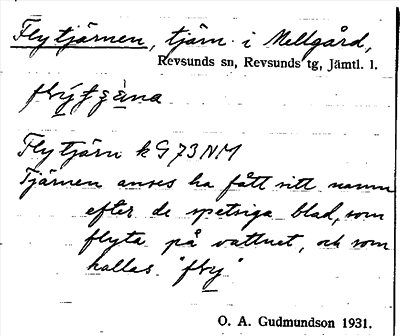 Flytjärnen, tjärn i Mellgård,
Revsunds sn, Revsunds tg, Jämtl. l.
Flytjärn k G 73 NM
Tjärnen anses ha fått sitt namn
efter de spetsiga blad, som
flyta på vattnet, och som
kallas "fly"
O. A. Gudmundson 1931.